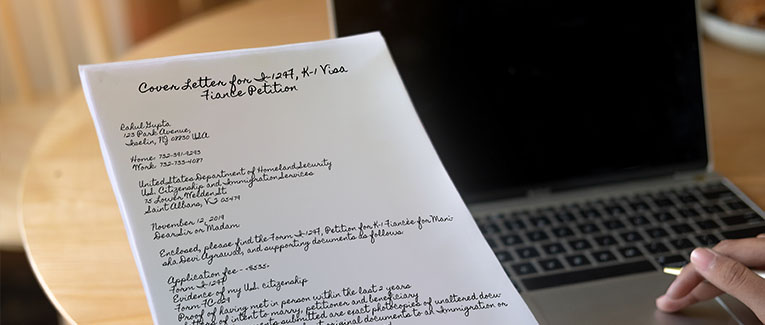 Cover Letter for I-129F, K-1 Visa
Fiance Petition
Rahul Gupta
123 Park Avenue,
Iselin, NJ 08830 USA
Home: 732-391-9293
Work: 732-733-4087
United States Department of Homeland Security
U.S. Citizenship and Immigration Services
75 Lower Welden St
Saint Albans, VT 05479
November 12, 2019
Dear Sir or Madam,
Enclosed, please find the Form I-129F, Petition for K-1 Fiancée for Mani-
sha Devi Agrawal, and supporting documents as follows.
Application fee - $535.
Form I-129F
Evidence of my U.S. citizenship
Form FC-029
Proof of having met in person within the last 2 years
of intent to marry, petitioner and beneficiary
submitted are exact photocopies of unaltered docu-
original documents to an Immigration or